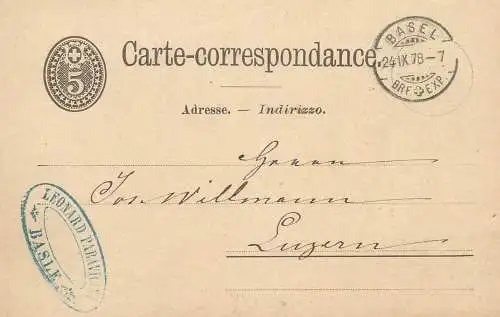 5
Carte-correspondance.
BASEL
24 IX 78 – 7
BRF. EXP.
Adresse. — Indirizzo.
Herrn
Jos. Willmann
Luzern
LEONARD PARAVIC
BASLE